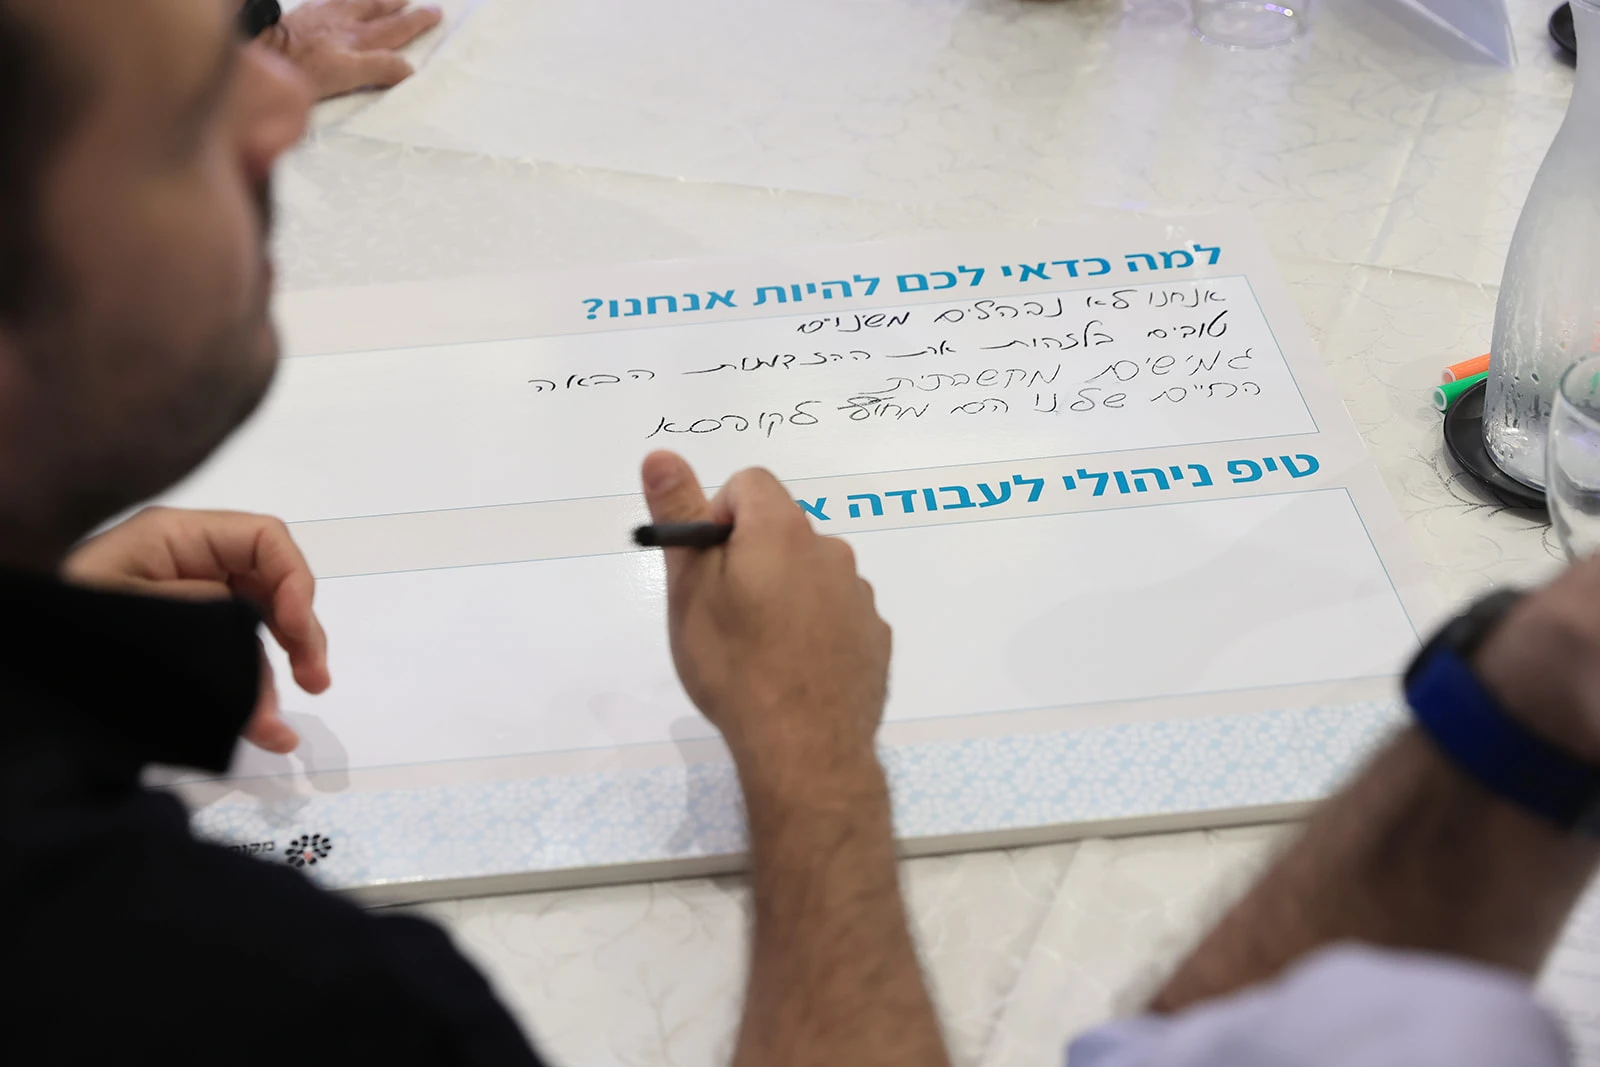 למה כדאי לכם להיות אנחנו?
אנחנו לא נבהלים משנו"ט
טובים בלזהות את ההזדמנות הבאה
גמישים מקשבתית
החיים שלנו הם מחוץ לקופסא
טיפ ניהולי לעבודה א